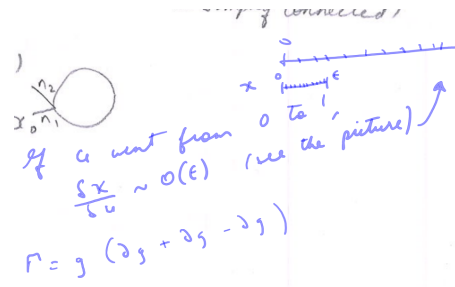 simply connected)
)
0
n₂
x₀ n₁
x 0 ε
If u went from 0 to 1,
δx/δu ~ O(ε) (see the picture)
Γ = g (∂g + ∂g - ∂g)